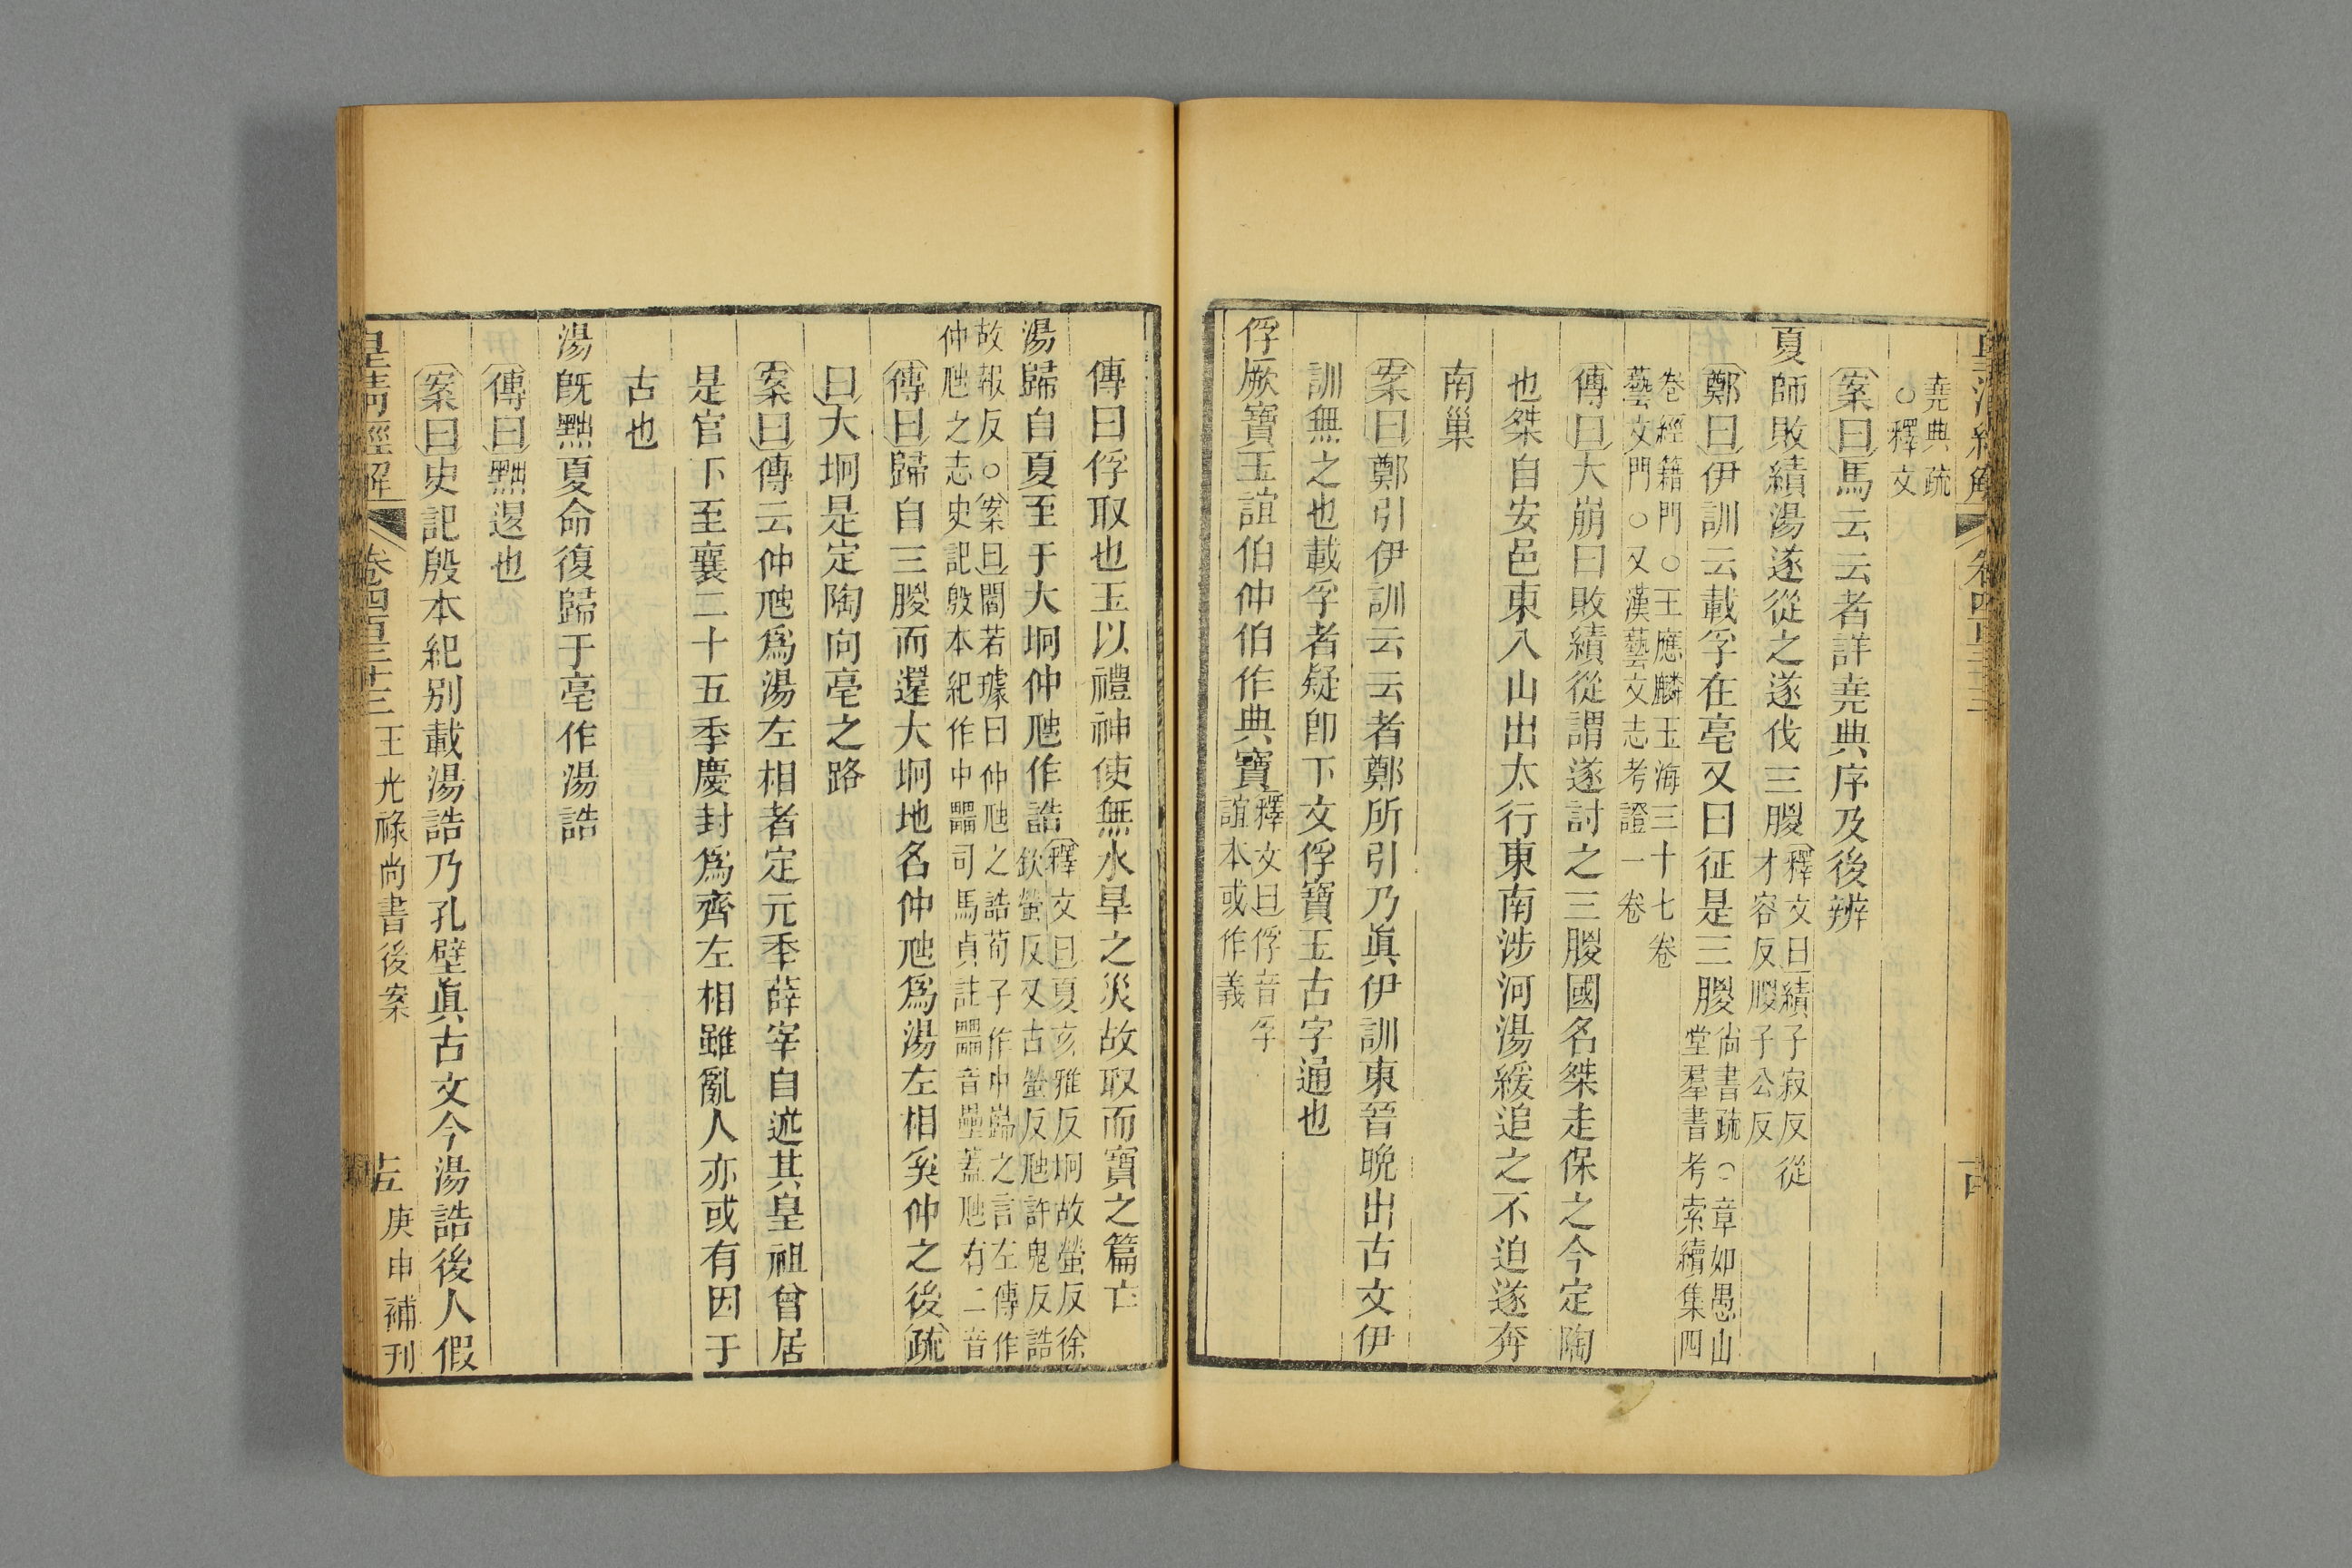 堯典疏
○釋文
案曰馬云云者詳堯典序及後辨
夏師敗績湯遂從之遂伐三朡釋文曰績子寂反從
才容反朡子公反
鄭曰伊訓云載孚在亳又曰征是三朡尙書疏○章如愚山
堂羣書考索續集四
卷經籍門○王應麟玉海三十七卷
藝文門○又漢藝文志考證一卷
傳曰大崩曰敗績從謂遂討之三朡國名桀走保之今定陶
也桀自安邑東入山出太行東南涉河湯緩追之不迫遂奔
南巢
案曰鄭引伊訓云云者鄭所引乃眞伊訓東晉晩出古文伊
訓無之也載孚者疑卽下文俘寶玉古字通也
俘厥寶玉誼伯仲伯作典寶釋文曰俘音孚
誼本或作義
傳曰俘取也玉以禮神使無水旱之災故取而寶之篇亡
湯歸自夏至于大坰仲虺作誥釋文曰夏亥雅反坰故螢反徐
欽螢反又古螢反虺許鬼反誥
故報反○案曰閻若璩曰仲虺之誥荀子作中蘬之言左傳作
仲虺之志史記殷本紀作中𤳳司馬貞註𤳳音壘蓋虺有二音
傳曰歸自三朡而還大坰地名仲虺爲湯左相奚仲之後疏
曰大坰是定陶向亳之路
案曰傳云仲虺爲湯左相者定元季薛宰自述其皇祖曾居
是官下至襄二十五季慶封爲齊左相雖亂人亦或有因于
古也
湯旣黜夏命復歸于亳作湯誥
傳曰黜退也
案曰史記殷本紀別載湯誥乃孔壁眞古文今湯誥後人假
皇淸經解 卷四百三十三 王光祿尙書後案 庚申補刊